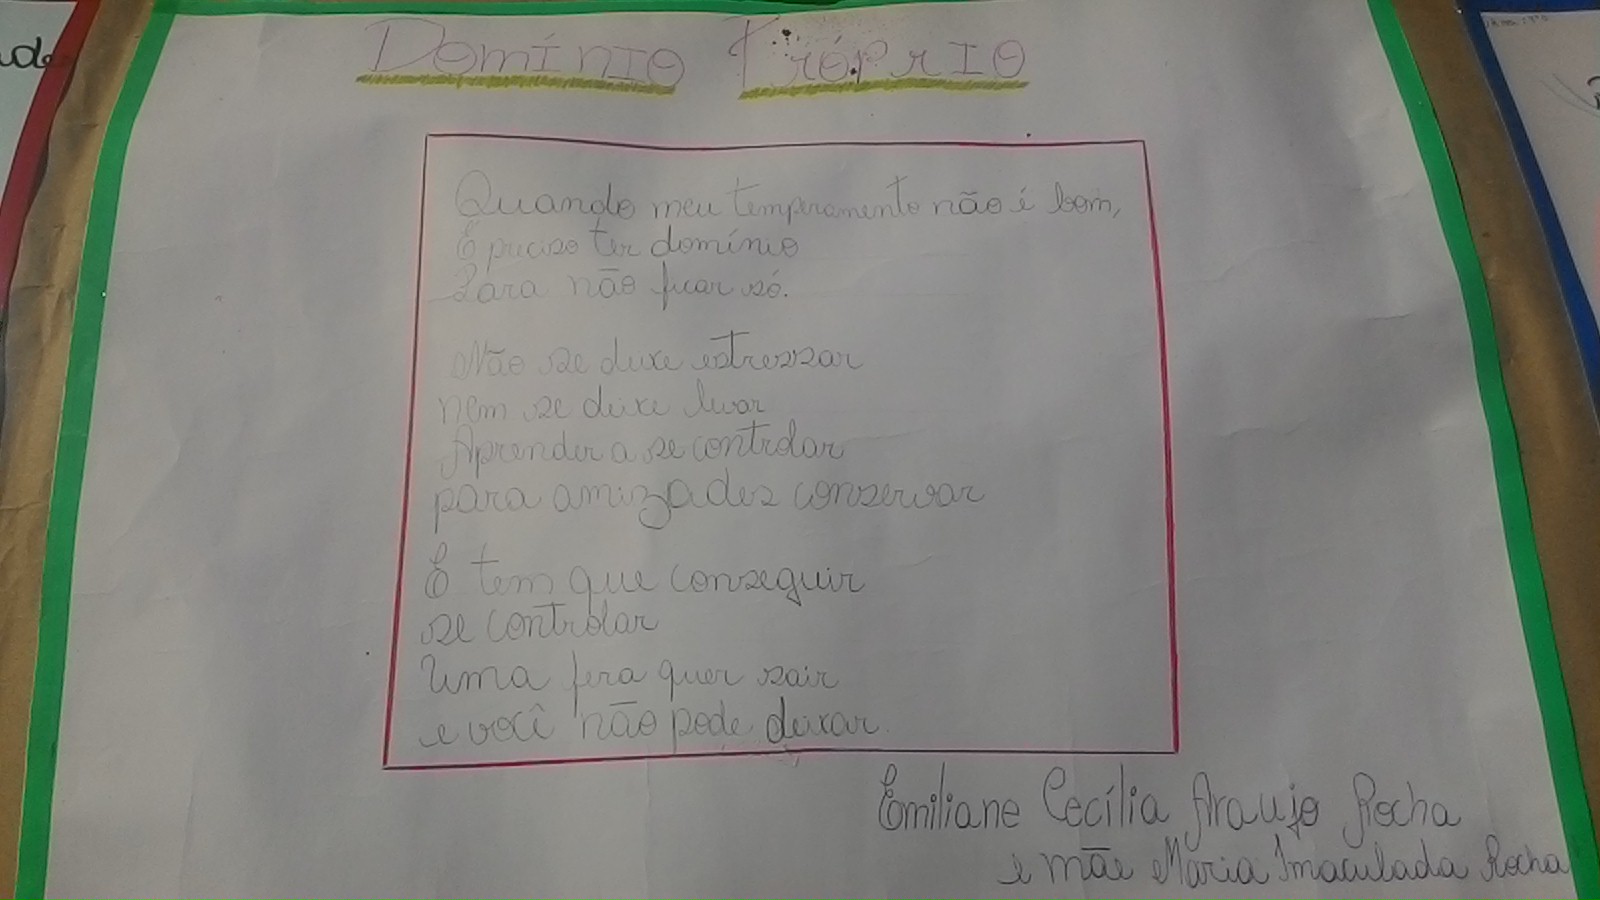 Domínio Próprio
Quando meu temperamento não é bom,
É preciso ter domínio
Para não ficar só.
Não se deixe estressar
nem se deixe levar
Aprender a se controlar
para amizades conservar
E tem que conseguir
se controlar
Uma fera quer sair
e você não pode deixar.
Emiliane Cecília Araujo Rocha
e mãe Maria Imaculada Rocha